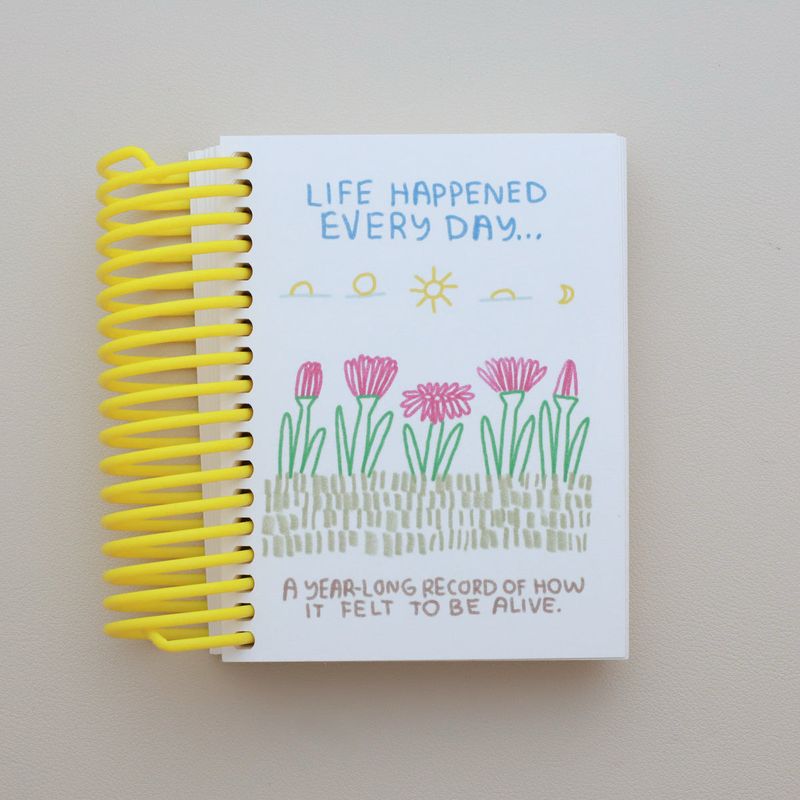 LIFE HAPPENED
EVERY DAY...
A YEAR-LONG RECORD OF HOW
IT FELT TO BE ALIVE.